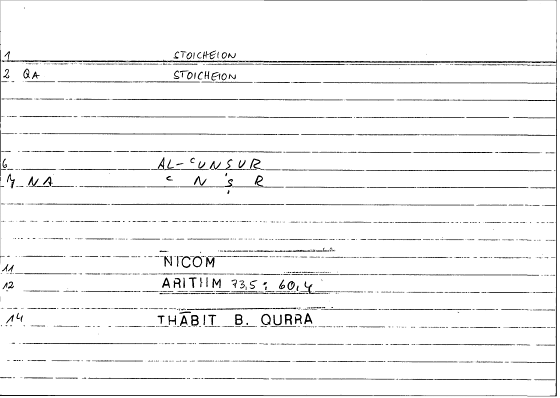 1 STOICHEION
2 QA STOICHEION
6 AL-ʿUNSUR
7 NA ʿ N Ṣ R
11 NICOM
12 ARITHM 73,5 : 60,4
14 THĀBIT B. QURRA